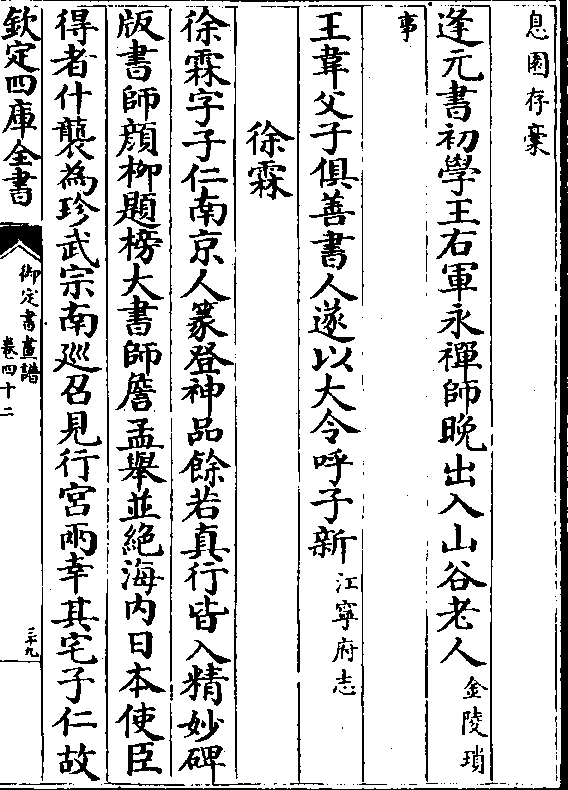 息園存稾
逢元書初學王右軍永禪師晚出入山谷老人金陵瑣
事
王韋父子俱善書人遂以大令呼子新江寧府志
徐霖
徐霖字子仁南京人篆登神品餘若真行皆入精妙碑
版書師顔柳題榜大書師詹孟舉並絶海内日本使臣
得者什襲為珍武宗南廵召見行宮兩幸其宅子仁故
欽定四庫全書
御定書畫譜
卷四十二
三十九